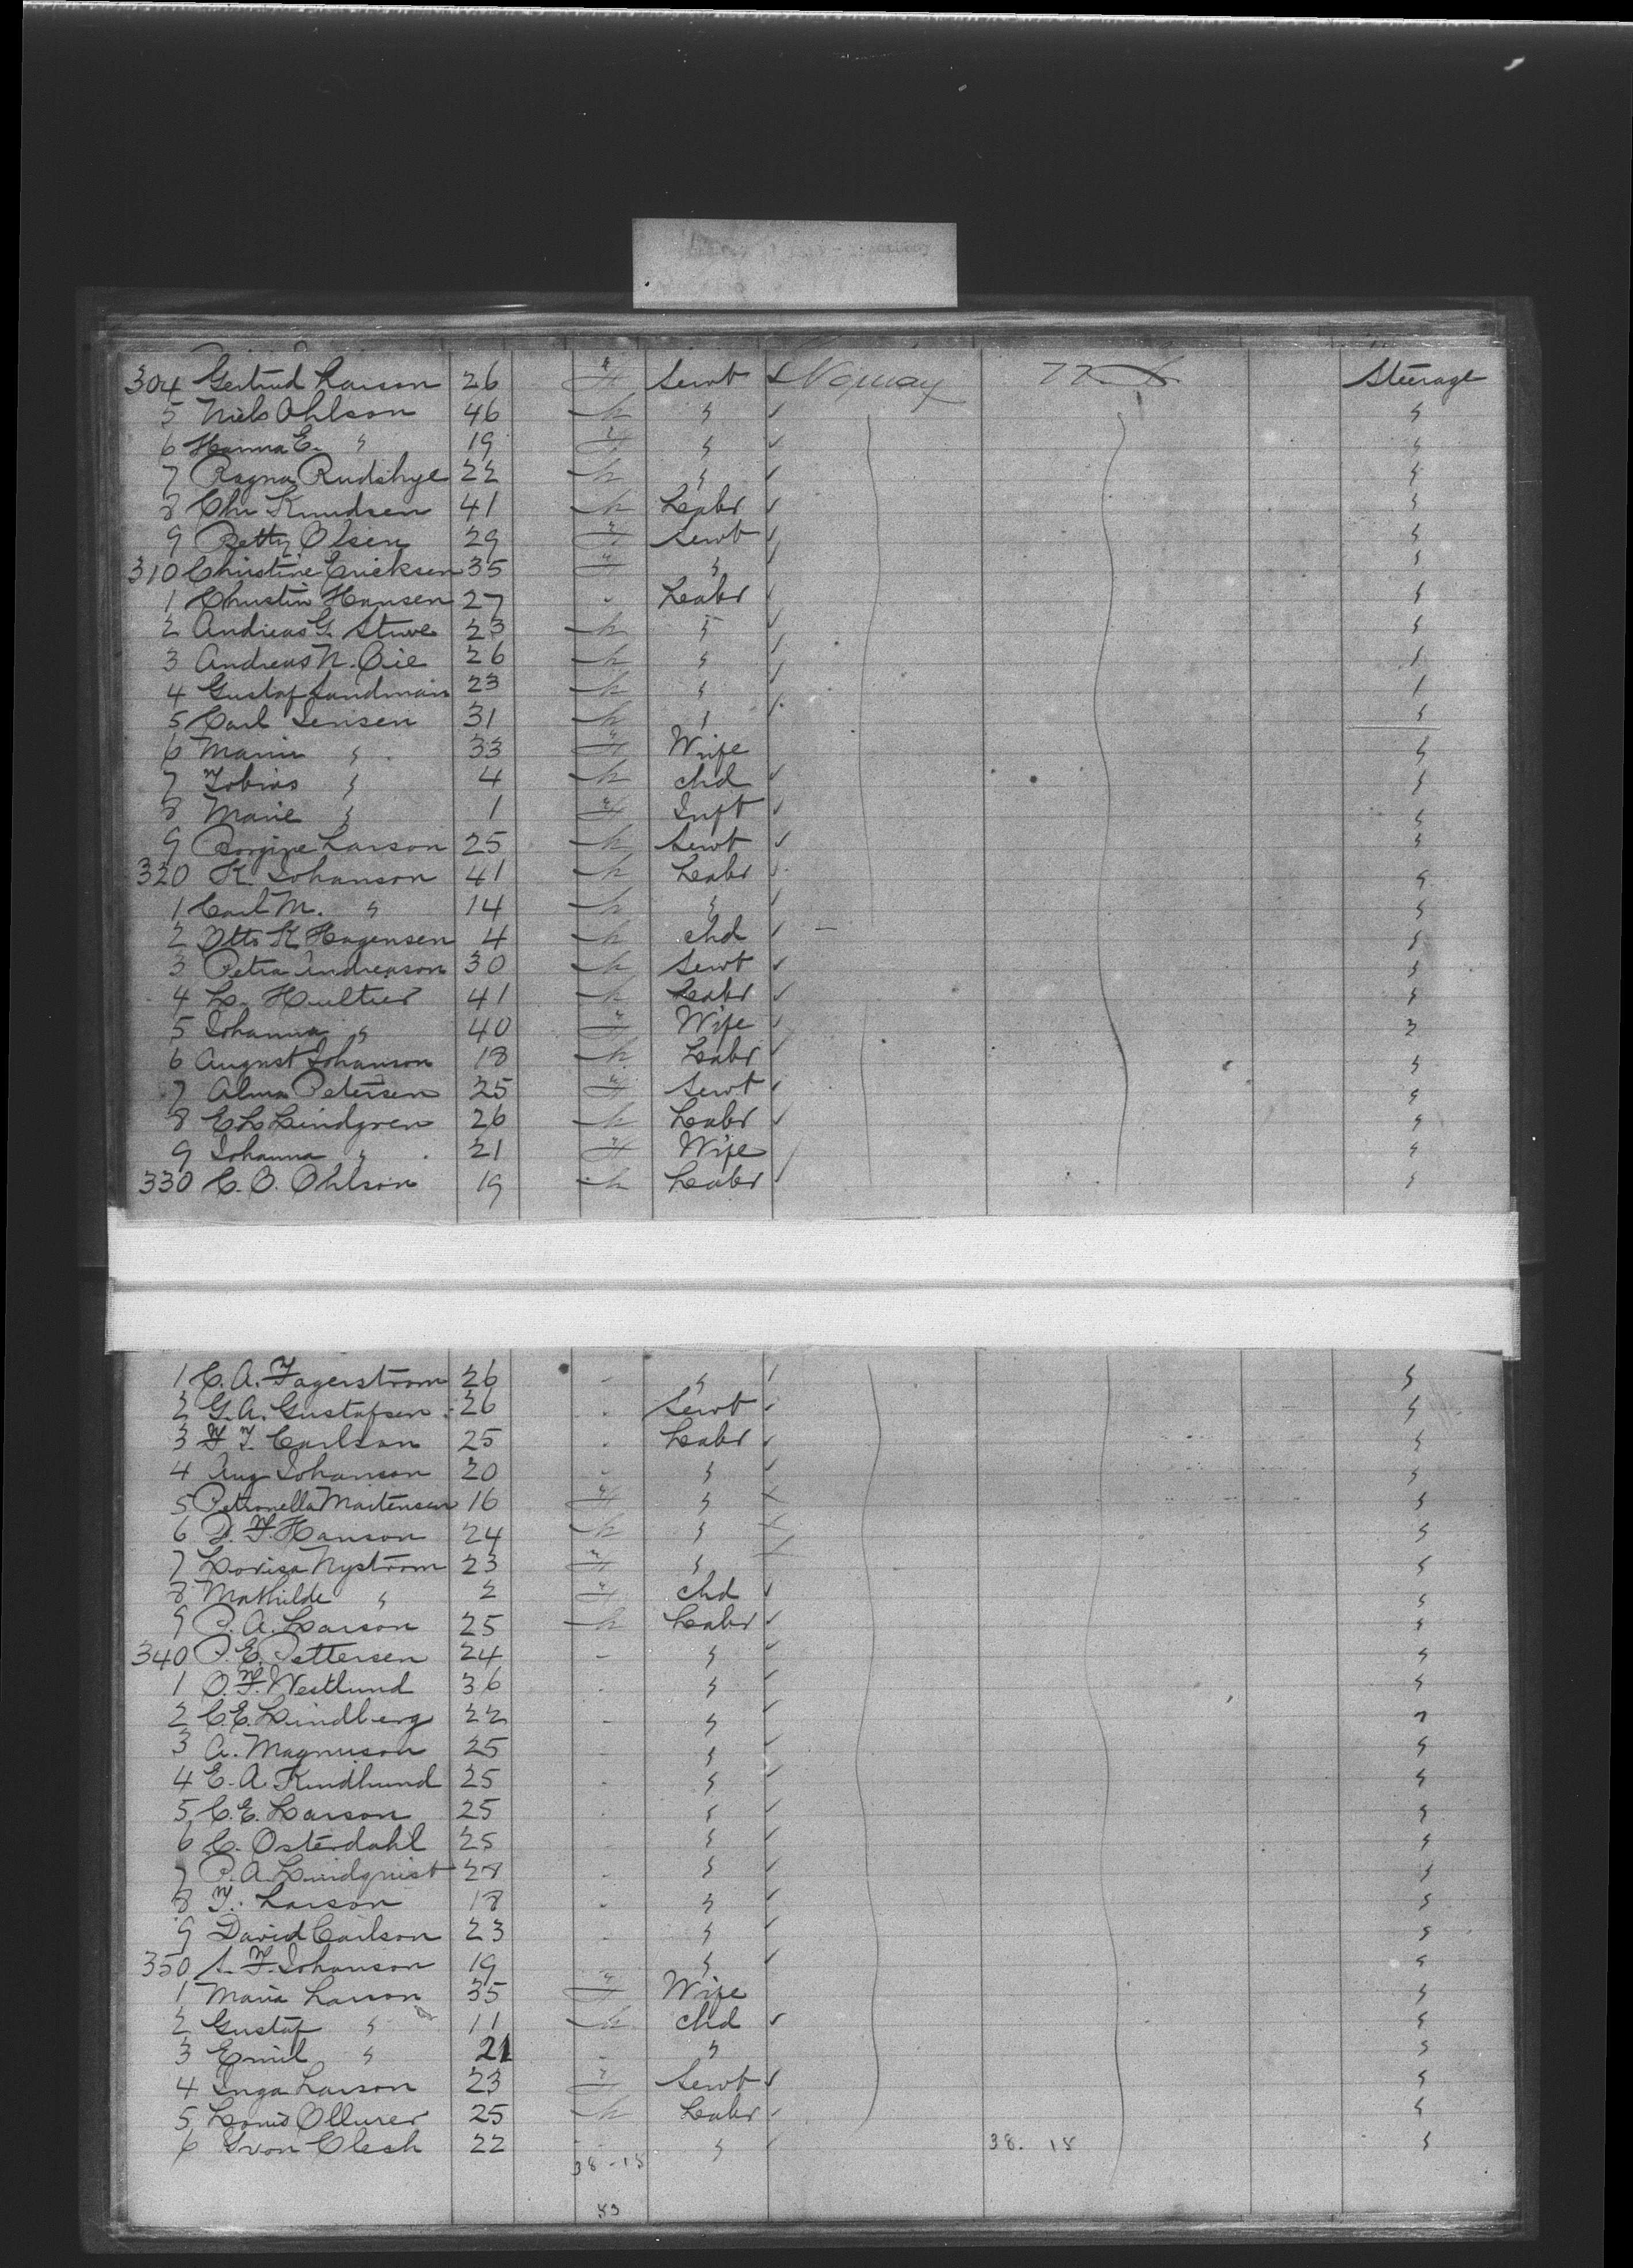 304 Gertrud Larson 26 F Servt Norway U.S. Steerage
5 Niels Ohlson 46 M " "
6 Hanna E. " 19 F " "
7 Ragna Rudshye 22 M " "
8 Chr Knudsen 41 M Labr "
9 Betty Olsen 29 F Servt "
310 Christine Ericksen 35 F " "
1 Christin Hansen 27 Labr "
2 Andreas G. Stuve 23 M " "
3 Andreas N. Oie 26 M " "
4 Gustaf Sandman 23 M " "
5 Carl Jensen 31 M " "
6 Marin " 33 F Wife "
7 Tobias " 4 M chd "
8 Marie " 1 F Inft "
9 Borgine Larson 25 M Servt "
320 K. Johanson 41 M Labr "
1 Carl M. " 14 M " "
2 Otto K Hagensen 4 M chd "
3 Petra Andreason 30 M Servt "
4 L. Hultier 41 M Labr "
5 Johanna " 40 F Wife "
6 August Johanson 18 M Labr "
7 Alma Petersen 25 F Servt "
8 E L Lindgren 26 M Labr "
9 Johanna " 21 F Wife "
330 C. O. Ohlson 19 M Labr "
1 C. A. Fagerstrom 26 - " "
2 G. A. Gustafsen 26 - Servt "
3 F T. Carlson 25 - Labr "
4 Aug Johanson 20 - " "
5 Petronella Martensen 16 F " "
6 P. F. Hanson 24 M " "
7 Lovisa Nystrom 23 F " "
8 Mathilde " 2 F chd "
9 P. A. Larson 25 M Labr "
340 P. E. Pettersen 24 - " "
1 O. F. Westlund 36 - " "
2 C. E. Lindberg 22 - " "
3 A. Magnuson 25 - " "
4 E. A. Kindlund 25 - " "
5 C. E. Larson 25 - " "
6 C. Osterdahl 25 - " "
7 P. A. Lindquist 28 - " "
8 T. Larson 18 - " "
9 David Carlson 23 - " "
350 A. F. Johanson 19 - " "
1 Maria Larson 35 F Wife "
2 Gustaf " 11 M chd "
3 Emil " 21 - " "
4 Inga Larson 23 F Servt "
5 Louis Ollurer 25 M Labr "
6 Ivon Olesh 22 - " 38. 18 "
38 - 18